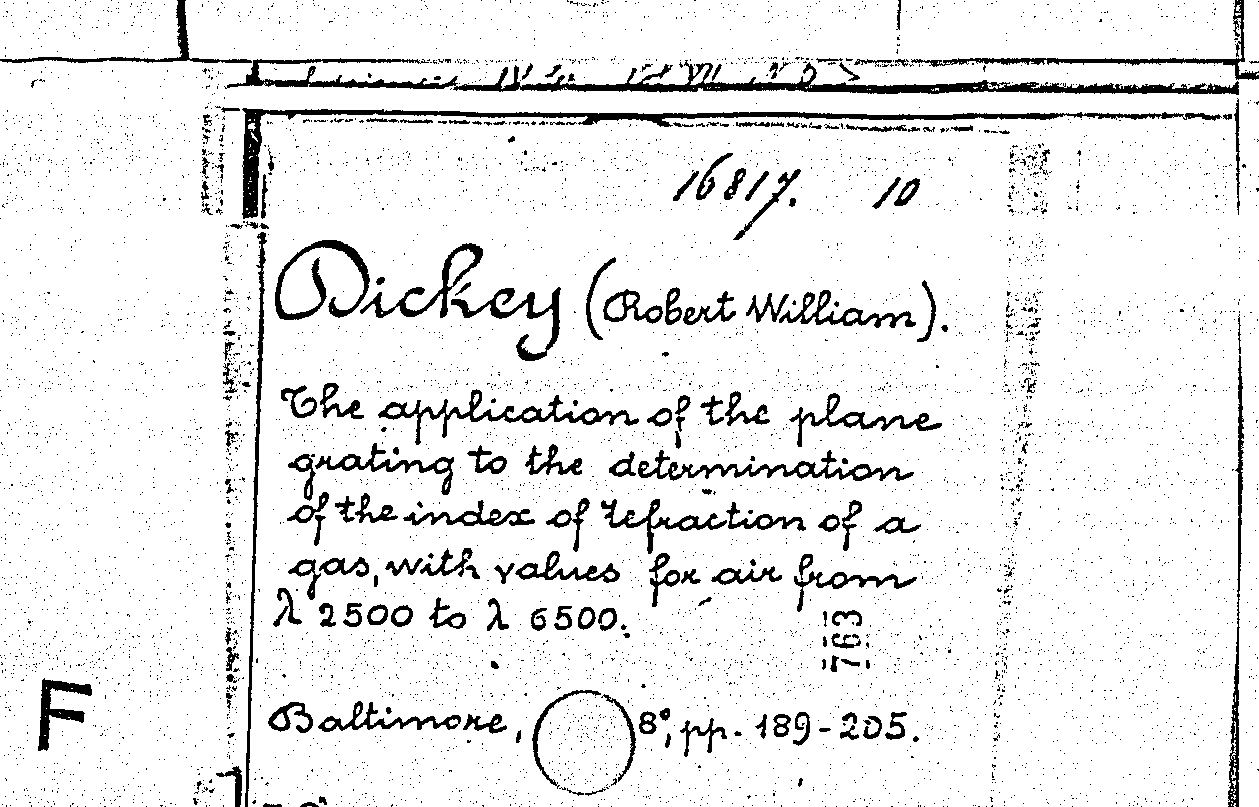 16817. 10
Dickey (Robert William).
The application of the plane
grating to the determination
of the index of refraction of a
gas, with values for air from
λ 2500 to λ 6500.
763
F
Baltimore, 8°, pp. 189-205.